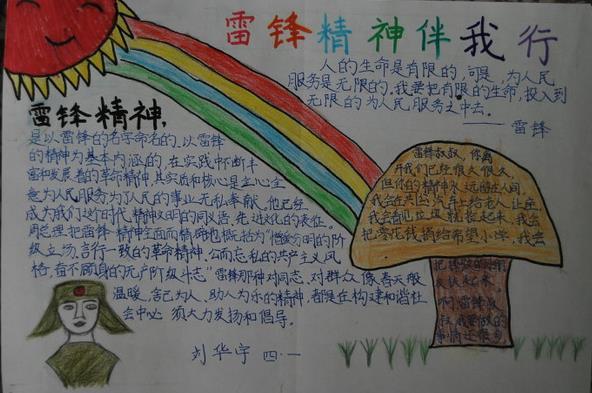 雷锋精神伴我行
人的生命是有限的,可是,为人民
服务是无限的,我要把有限的生命,投入到
无限的为人民服务之中去。
——雷锋
雷锋精神,
是以雷锋的名字命名的、以雷锋
的精神为基本内涵的、在实践中不断丰
富和发展着的革命精神,其实质和核心是全心全
意为人民服务,为了人民的事业无私奉献,他已经
成为我们这个时代精神文明的同义语、先进文化的表征。
周总理把雷锋精神全面而精确地概括为“憎爱分明的阶
级立场、言行一致的革命精神、公而忘私的共产主义风
格、奋不顾身的无产阶级斗志”雷锋那种对同志、对群众像春天般
温暖,舍己为人、助人为乐的精神,都是在构建和谐社
会中必须大力发扬和倡导。
雷锋叔叔,你离
开我们已经很久很久,
但你的精神永远留在人间,
我会在公共汽车上给老人让座,
我会看见垃圾就捡起来,我会
把零花钱捐给希望小学,我会
啊雷锋叔
叔,我要做的
事情还很多
刘华宇 四·一